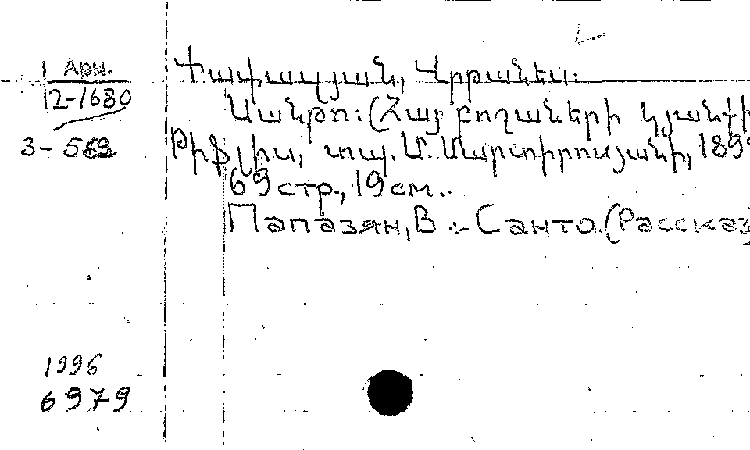 Арм.
12-1680
3-563
Փափազյան, Վրթանես.
Սանթո: (Հայ բոշաների կյանքի
Թիֆլիս, տպ. Մ. Մարտիրոսյանի, 189
69 стр., 19 см..
Папазян, В. - Санто. (Рассказ
1996
6979